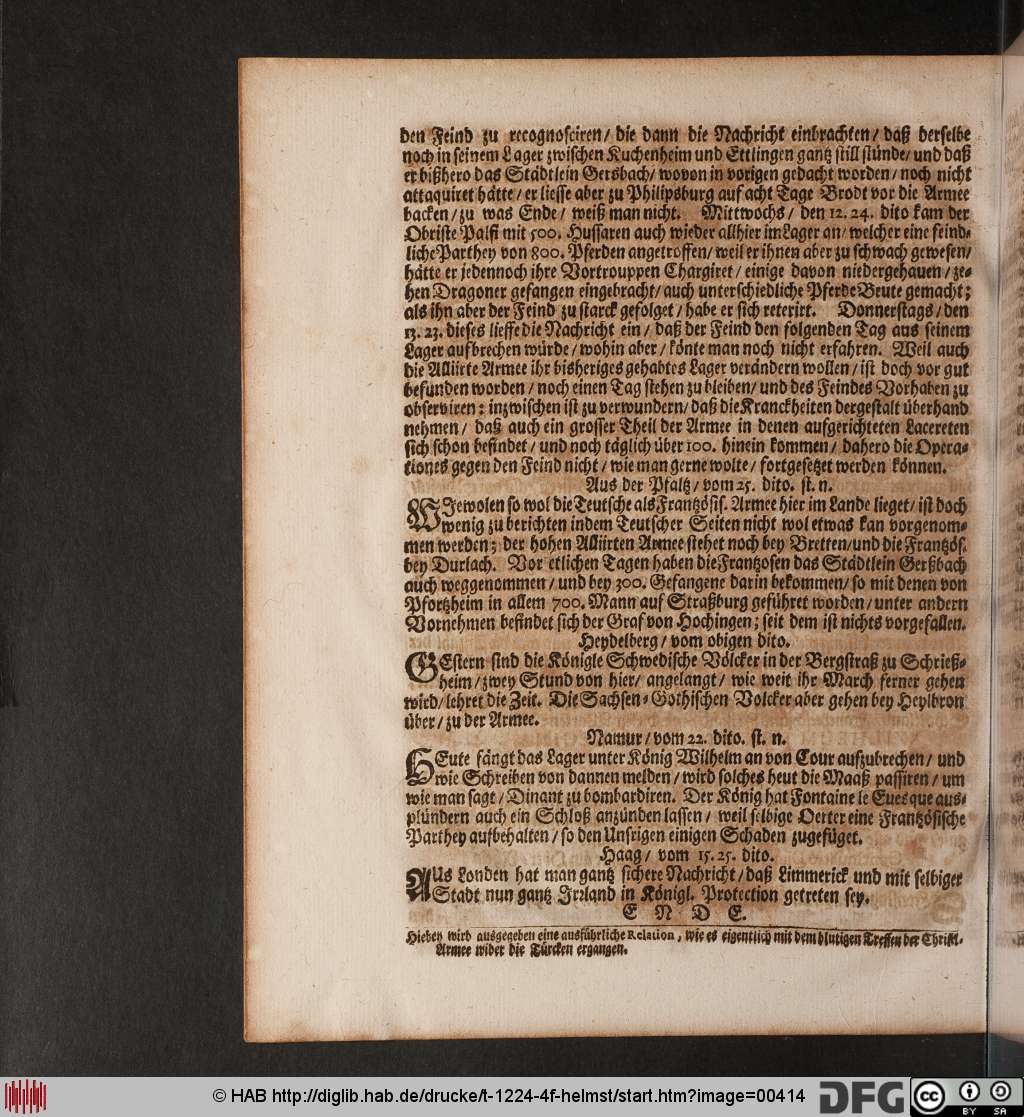 den Feind zu recognosciren / die dann die Nachricht einbrachten / daß derselbe
noch in seinem Lager zwischen Kuchenheim und Ettlingen gantz still stünde / und daß
er bißhero das Städtlein Gersbach / wovon in vorigen gedacht worden / noch nicht
attaquiret hätte / er liesse aber zu Philipsburg auf acht Tage Brodt vor die Armee
backen / zu was Ende / weiß man nicht. Mittwochs / den 12. 24. dito kam der
Obriste Palfi mit 500. Hussaren auch wieder allhier im Lager an / welcher eine feind-
liche Parthey von 800. Pferden angetroffen / weil er ihnen aber zu schwach gewesen /
hätte er jedennoch ihre Vortrouppen Chargiret / einige davon niedergehauen / ze-
hen Dragoner gefangen eingebracht / auch unterschiedliche Pferde Beute gemacht;
als ihn aber der Feind zu starck gefolget / habe er sich reterirt. Donnerstags / den
13. 23. dieses lieffe die Nachricht ein / daß der Feind den folgenden Tag aus seinem
Lager aufbrechen würde / wohin aber / könte man noch nicht erfahren. Weil auch
die Alliirte Armee ihr bisheriges gehabtes Lager verändern wollen / ist doch vor gut
befunden worden / noch einen Tag stehen zu bleiben / und des Feindes Vorhaben zu
observiren: inzwischen ist zu verwundern / daß die Kranckheiten dergestalt überhand
nehmen / daß auch ein grosser Theil der Armee in denen aufgerichteten Lacereten
sich schon befindet / und noch täglich über 100. hinein kommen / dahero die Opera-
tiones gegen den Feind nicht / wie man gerne wolte / fortgesetzet werden können.
Aus der Pfaltz / vom 25. dito. st. n.
WIewolen so wol die Teutsche als Frantzösis. Armee hier im Lande lieget / ist doch
wenig zu berichten indem Teutscher Seiten nicht wol etwas kan vorgenom-
men werden; der hohen Alliirten Armee stehet noch bey Bretten / und die Frantzös.
bey Durlach. Vor etlichen Tagen haben die Frantzosen das Städtlein Gerßbach
auch weggenommen / und bey 300. Gefangene darin bekommen / so mit denen von
Pfortzheim in allem 700. Mann auf Straßburg geführet worden / unter andern
Vornehmen befindet sich der Graf von Hochingen; seit dem ist nichts vorgefallen.
Heydelberg / vom obigen dito.
GEstern sind die Königle Schwedische Völcker in der Bergstraß zu Schrieß-
heim / zwey Stund von hier / angelangt / wie weit ihr March ferner gehen
wird / lehret die Zeit. Die Sachsen-Gothischen Volcker aber gehen bey Heylbron
über / zu der Armee.
Namur / vom 22. dito. st. n.
HEute fängt das Lager unter König Wilhelm an von Cour aufzubrechen / und
wie Schreiben von dannen melden / wird solches heut die Maaß passiren / um
wie man sagt / Dinant zu bombardiren. Der König hat Fontaine le Euesque aus-
plündern auch ein Schloß anzünden lassen / weil selbige Oerter eine Frantzösische
Parthey aufbehalten / so den Unsrigen einigen Schaden zugefüget.
Haag / vom 15. 25. dito.
AUs Londen hat man gantz sichere Nachricht / daß Limmerick und mit selbiger
Stadt nun gantz Irrland in Königl. Protection getreten sey.
E N D E.
Hiebey wird ausgegeben eine ausführliche Relation, wie es eigentlich mit dem blutigen Treffen der Christl.
Armee wider die Türcken ergangen.
© HAB http://diglib.hab.de/drucke/t-1224-4f-helmst/start.htm?image=00414
DFG
cc
BY SA